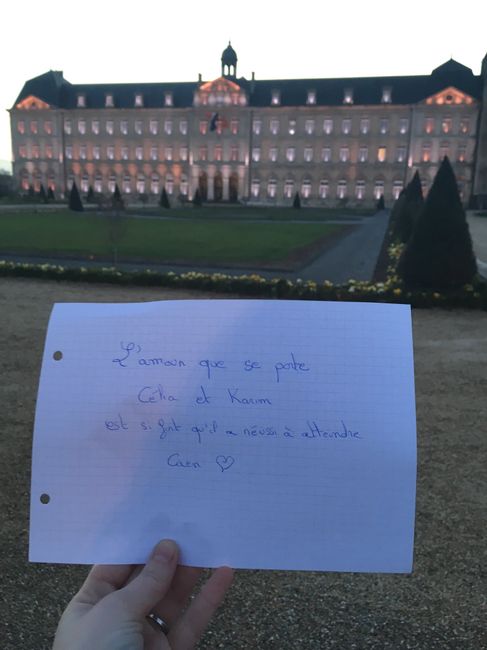 L'amour que se porte
Célia et Karim
est si fort qu'il a réussi à atteindre
Caen ♡